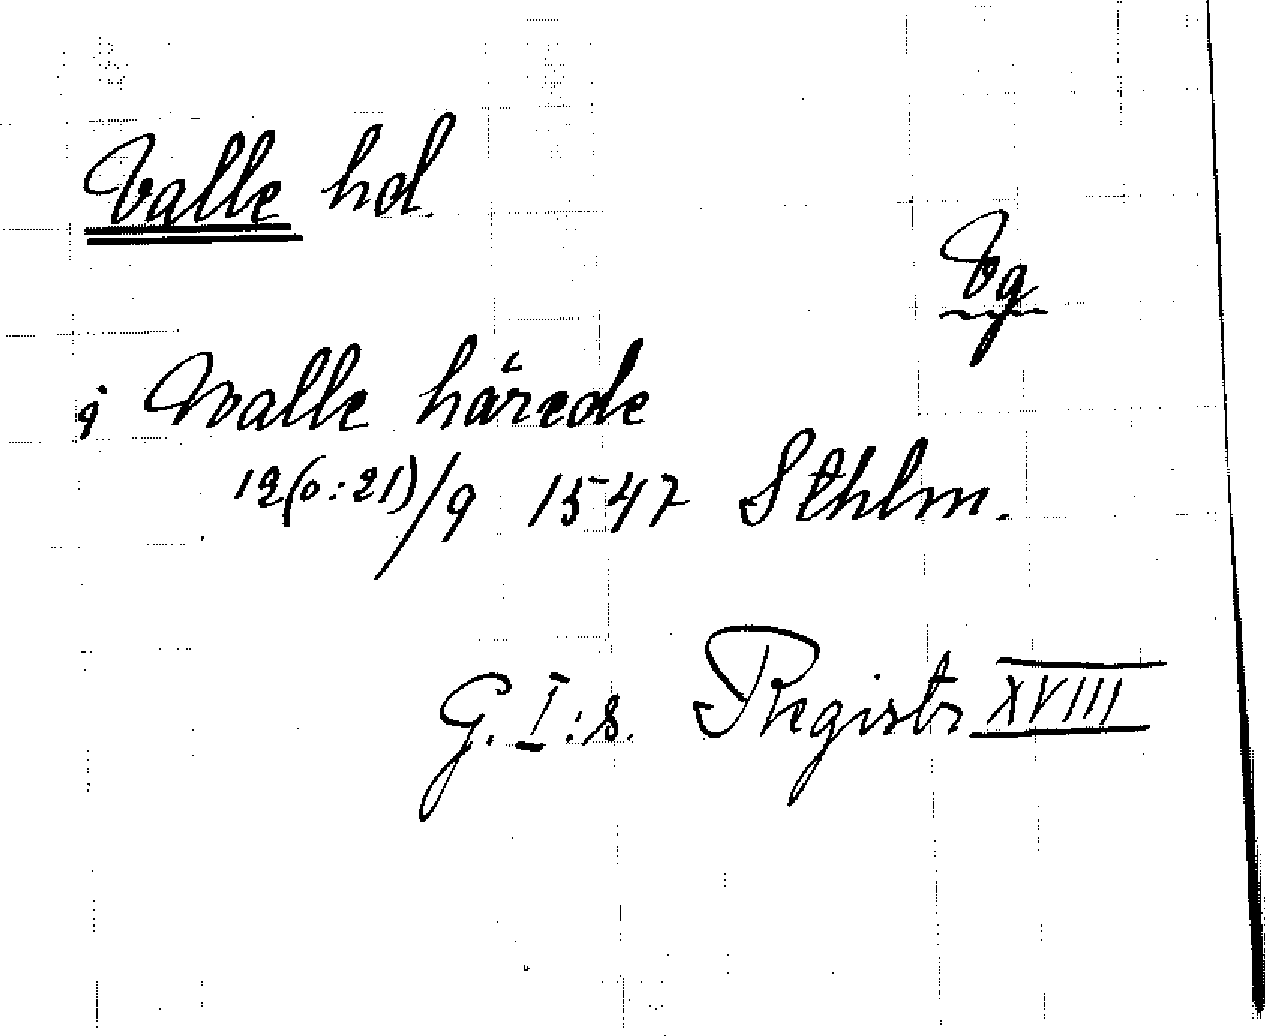 Valle hd.
Vg
j Walle härede
12(o:21)/9 1547 Sthlm.
G. I:s. Registr XVIII